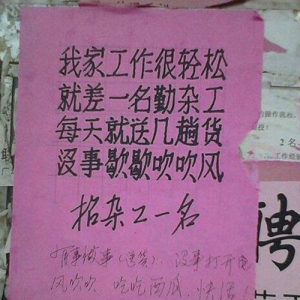 我家工作很轻松
就差一名勤杂工
每天就送几趟货
没事歇歇吹吹风
招杂工一名
有事做事(送货)、没事打开电
风吹吹 吃吃西瓜、快活!
聘
2名